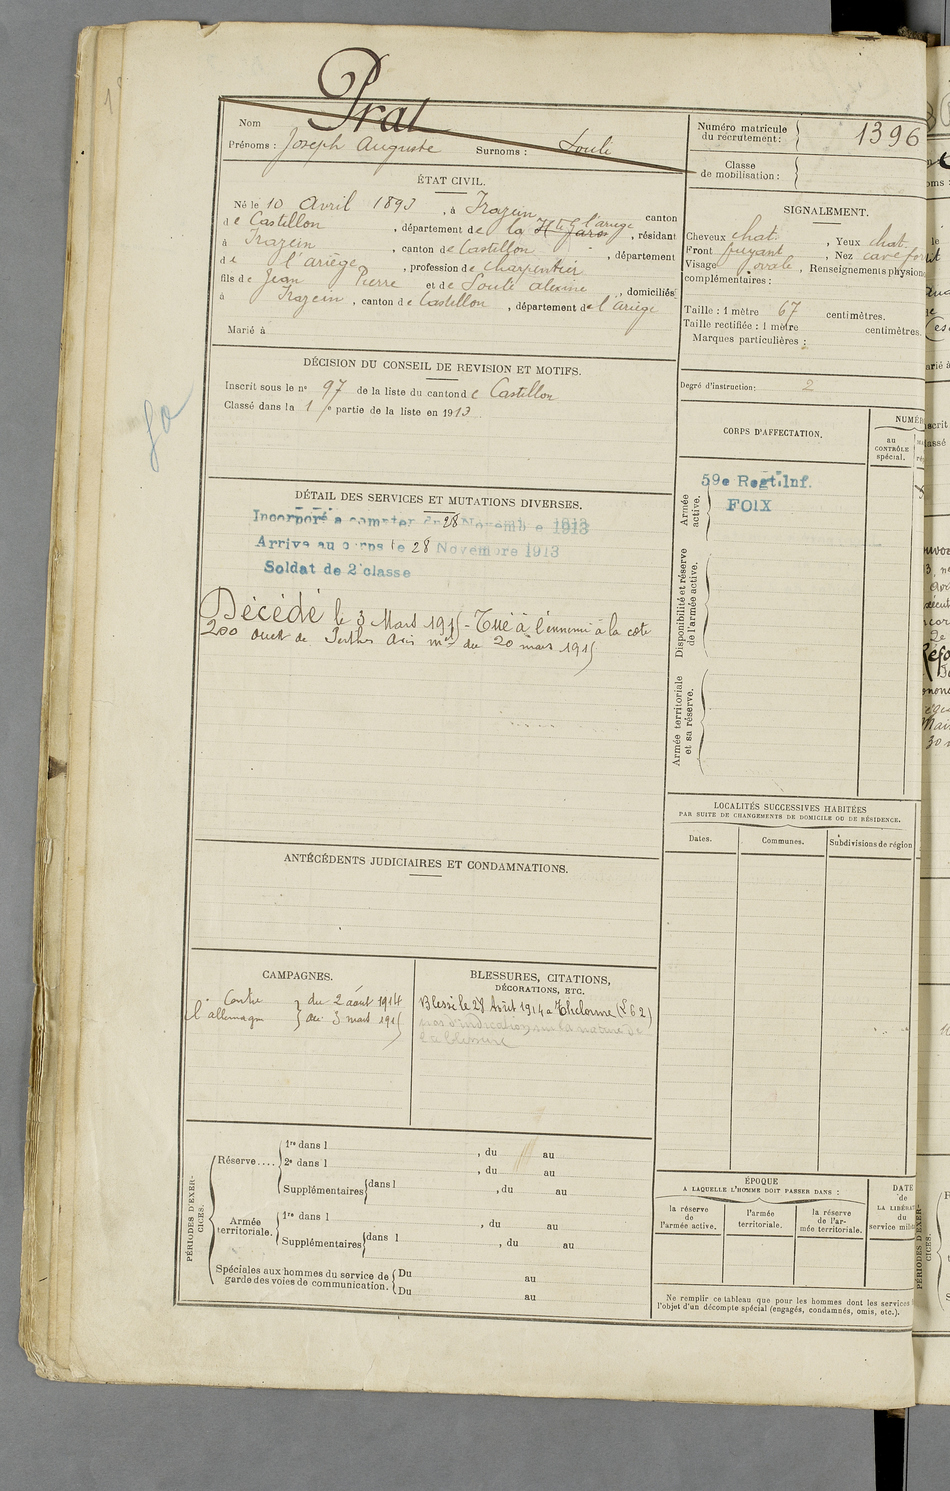 Prat
Nom
Prénoms : Joseph Auguste Surnoms : Soulé
Numéro matricule
du recrutement : 1396
Classe
de mobilisation :
ÉTAT CIVIL.
Né le 10 Avril 1893, à Trazein canton
de Castillon, département de la Hte Garon l'ariège, résidant
à Trazein, canton de Castillon, département
de l'ariège, profession de Charpentier
fils de Jean Pierre et de Soulé Alexine, domiciliés
à Trazein, canton de Castillon, département de l'ariège
Marié à
SIGNALEMENT.
Cheveux chat. , Yeux chat.
Front fuyant , Nez cave fort
Visage ovale , Renseignements physion
complémentaires :
Taille : 1 mètre 67 centimètres.
Taille rectifiée : 1 mètre centimètres.
Marques particulières :
Degré d'instruction : 2
DÉCISION DU CONSEIL DE REVISION ET MOTIFS.
Inscrit sous le n° 97 de la liste du canton de Castillon
Classé dans la 1re partie de la liste en 1913
CORPS D'AFFECTATION.
NUMÉR
au
CONTRÔLE
spécial.
Armée
active.
59e Regt.Inf.
FOIX
Disponibilité et réserve
de l'armée active.
Armée territoriale
et sa réserve.
DÉTAIL DES SERVICES ET MUTATIONS DIVERSES.
Incorporé a compter du 28 Novembre 1913
Arrivé au corps le 28 Novembre 1913
Soldat de 2 classe
Décédé le 3 Mars 1915 - Tué à l'ennemi à la cote
200 ouest de Perthes Avis mel du 20 mars 1915
LOCALITÉS SUCCESSIVES HABITÉES
PAR SUITE DE CHANGEMENTS DE DOMICILE OU DE RÉSIDENCE.
Dates. Communes. Subdivisions de région
ANTÉCÉDENTS JUDICIAIRES ET CONDAMNATIONS.
CAMPAGNES.
Contre du 2 août 1914
l'allemagne au 3 mars 1915
BLESSURES, CITATIONS,
DÉCORATIONS, ETC.
Blessé le 28 Août 1914 a Thelonne (S 62)
pas d'indication sur la nature de
la blessure
PÉRIODES D'EXER-
CICES.
Réserve.... 1re dans l , du au
2e dans l , du au
Supplémentaires dans l , du au
Armée
territoriale. 1re dans l , du au
Supplémentaires dans l , du au
Spéciales aux hommes du service de
garde des voies de communication. Du au
Du au
ÉPOQUE
A LAQUELLE L'HOMME DOIT PASSER DANS :
la réserve
de
l'armée active.
l'armée
territoriale.
la réserve
de l'ar-
mée territoriale.
DATE
de
LA LIBÉRAT
du
service milit
Ne remplir ce tableau que pour les hommes dont les services
l'objet d'un décompte spécial (engagés, condamnés, omis, etc.).